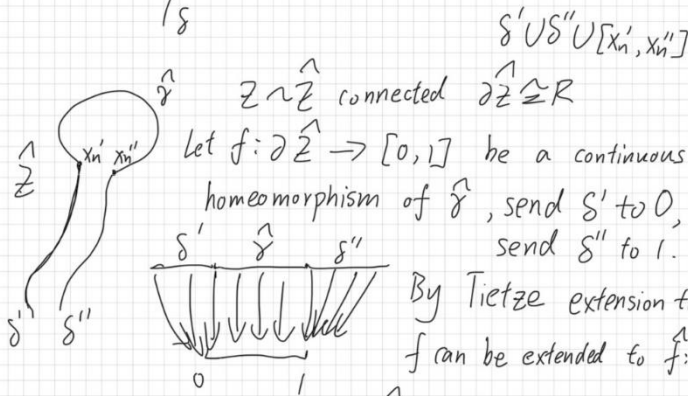 δ
δ'∪δ''∪[xn', xn'']
γ̂
Z ~ Ẑ connected ∂Ẑ ≅ R
xn' xn''
Ẑ
Let f: ∂Ẑ → [0,1] be a continuous
homeomorphism of γ̂, send δ' to 0,
δ' γ̂ δ''
send δ'' to 1.
By Tietze extension t
δ' δ''
f can be extended to f̂:
0 1